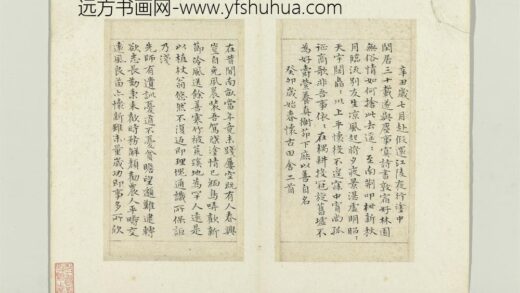 远方书画网-www.yfshuhua.com
辛丑歲七月赴假還江陵夜行塗中
閑居三十載遂與塵事冥詩書敦宿好林園
無俗情如何捨此去遥〻至南荆叩枻新秋
月臨流别友生涼風起將夕夜景湛虛明昭〻
天宇闊晶〻川上平懷役不遑寐中宵尚孤
征商歌非吾事依〻在耦耕投冠旋舊墟不
為好爵縈養真衡茅下庶以善自名
癸卯歲始春懷古田舍二首
在昔聞南畝當年竟未踐屢空既有人春興
豈自免夙晨裝吾駕啟塗情已緬鳥哢歡新
節泠風送餘善寒竹被荒蹊地為罕人遠是
以植杖翁悠然不復返即理愧通識所保詎
乃淺
先師有遺訓憂道不憂貧瞻望邈難逮轉
欲志長勤秉耒歡時務解顏勸農人平疇交
遠風良苗亦懷新雖未量歲功即事多所欣